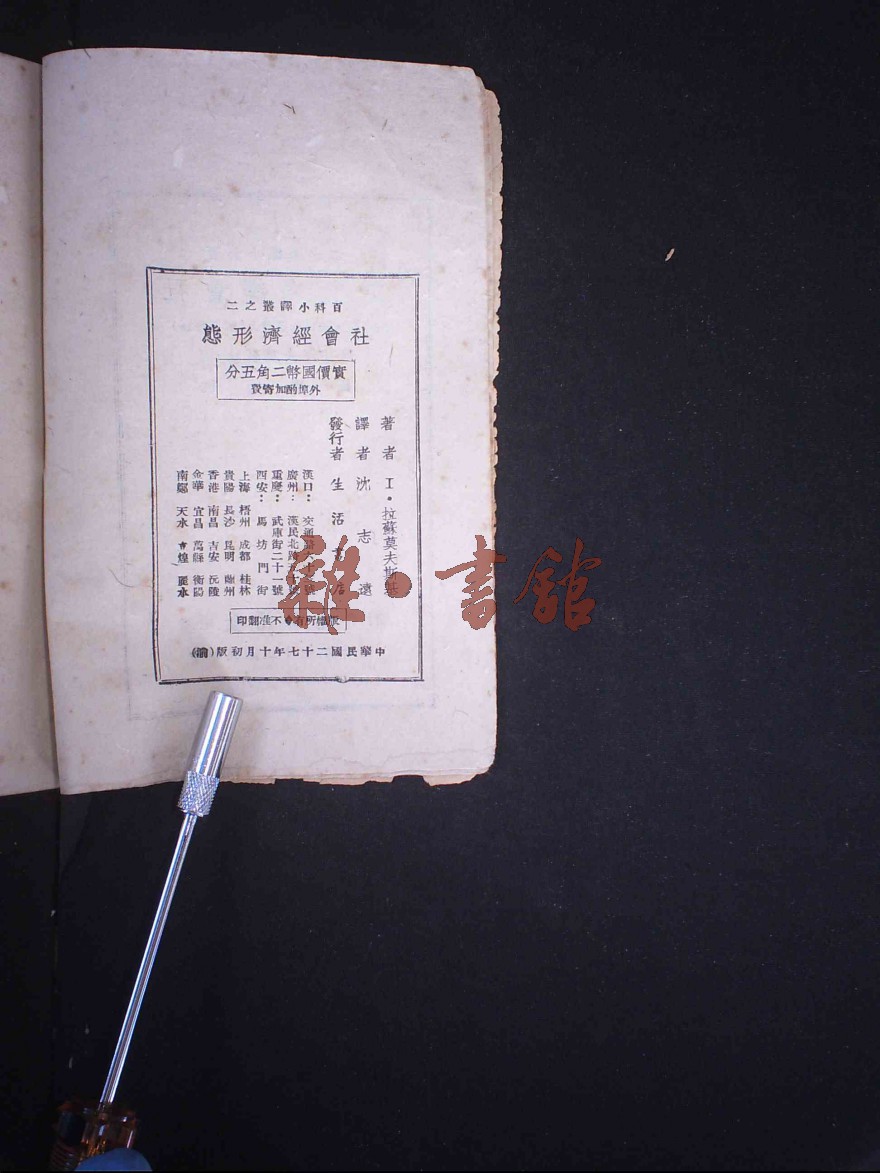 百科小譯叢之二
社會經濟形態
實價國幣二角五分
外埠酌加寄費
著者 I·拉蘇莫夫斯基
譯者 沈志遠
發行者 生活書店
漢口：交通路
廣州：漢民北路
重慶：武庫街二十一號
西安：馬坊門街
上海 梧州 桂林
貴陽 長沙 昆明 蘭州
香港 南昌 吉安 沅陵
金華 宜昌 萬縣 衡陽
南鄭 天水 麗水
版權所有 不准翻印
中華民國二十七年十月初版（渝）
雜·書館